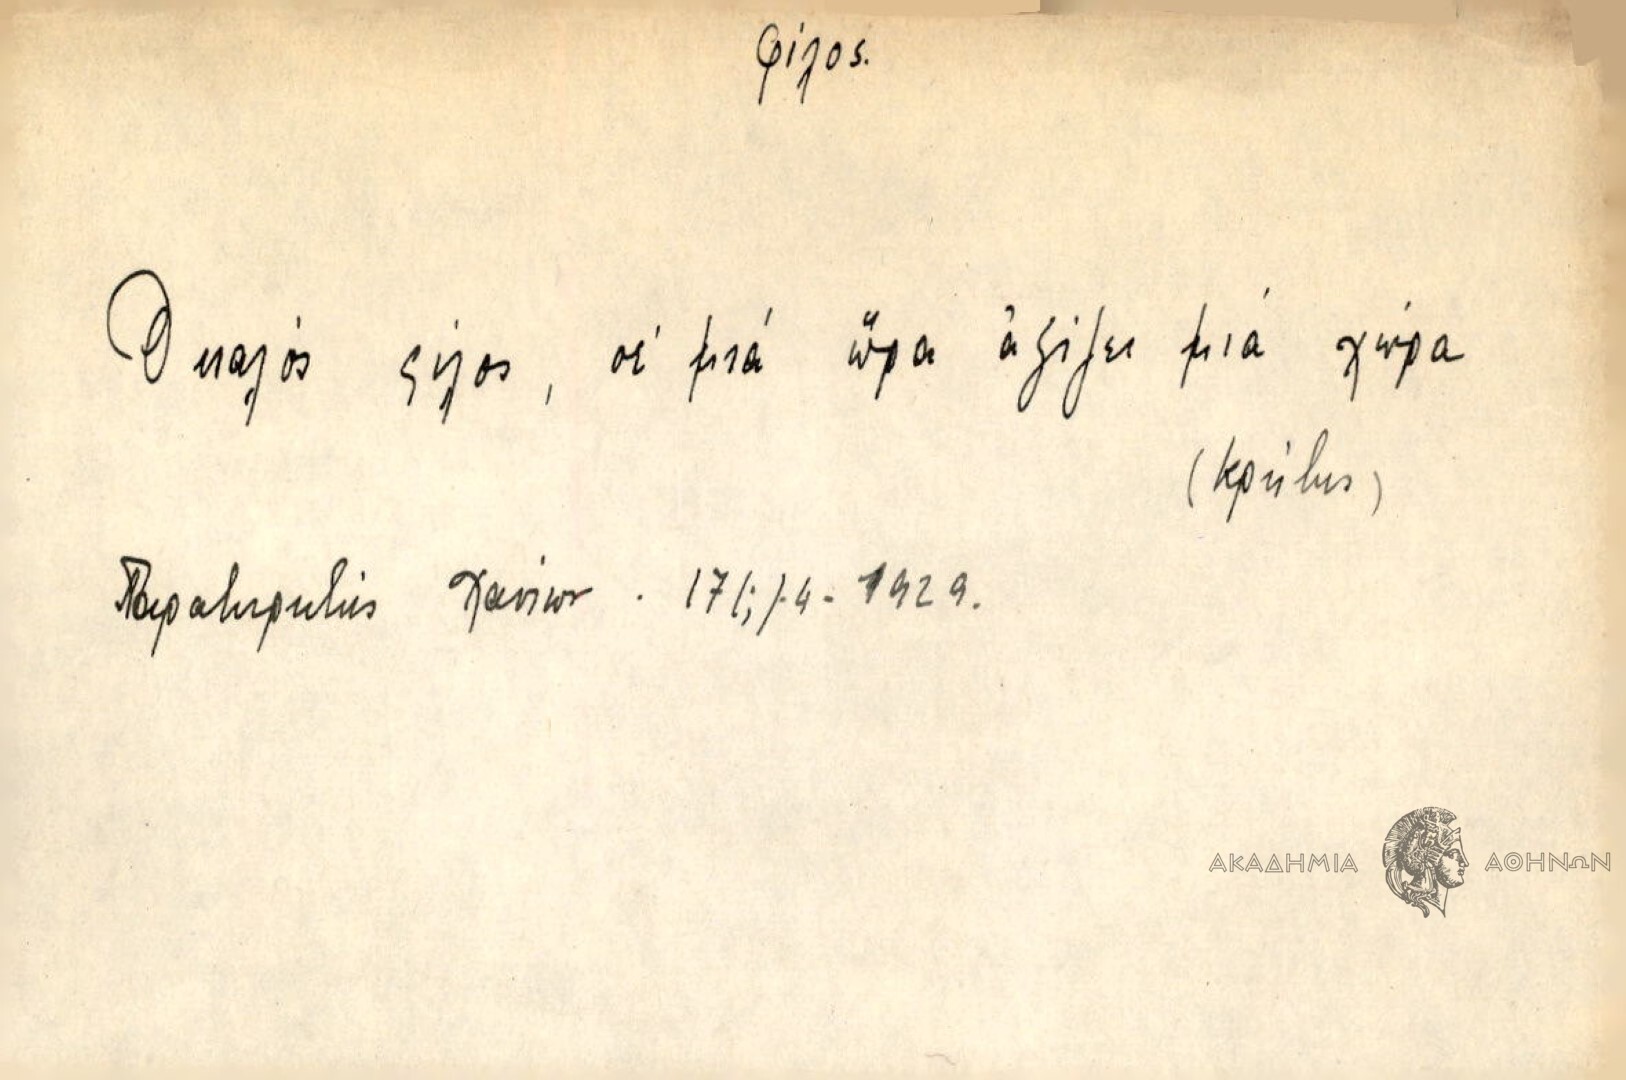 Φίλος.
Ὁ καλός φίλος, σέ μιά ὥρα ἀξίζει μιά χώρα
(Κρήτης)
Παρατηρητής Χανίων. 17/;/-4-1929.
ΑΚΑΔΗΜΙΑ ΑΘΗΝΩΝ